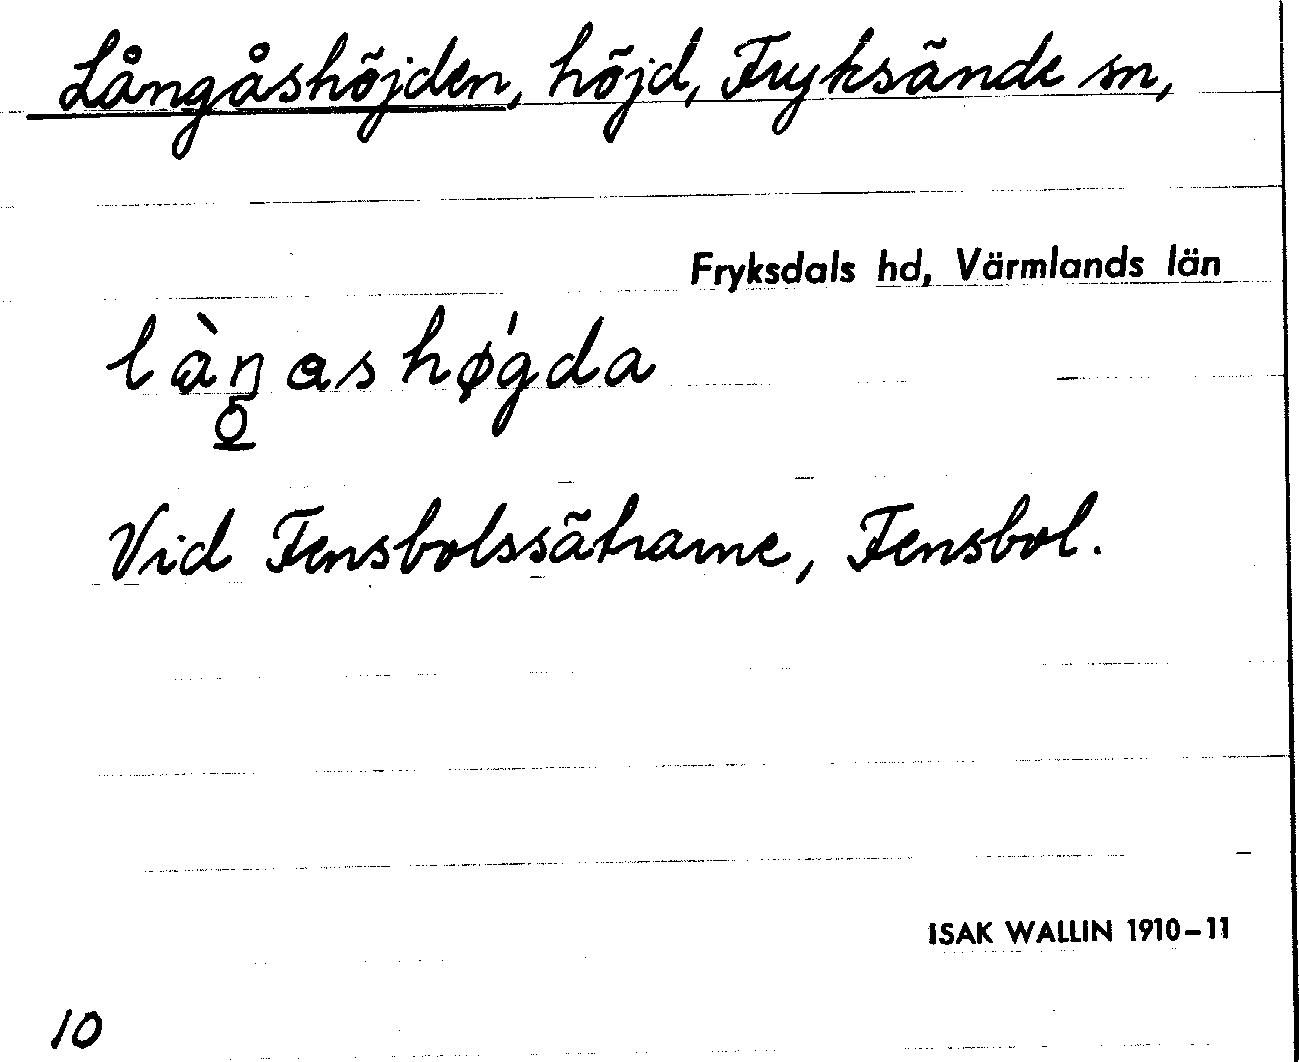 Långåshöjden, höjd, Fryksände sn,
Fryksdals hd, Värmlands län
làŋashǿgda
o
Vid Fensbolssätrarne, Fensbol.
ISAK WALLIN 1910–11
10